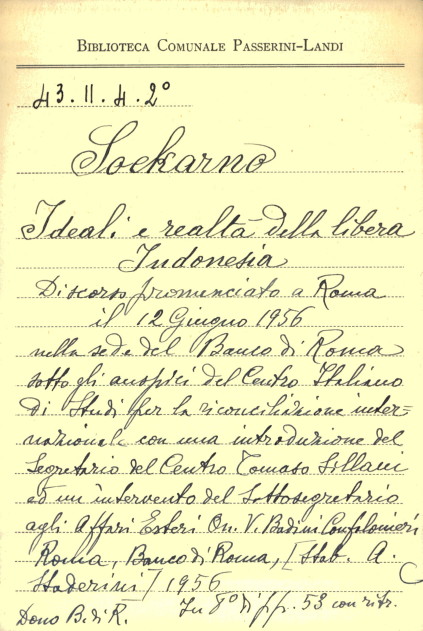 BIBLIOTECA COMUNALE PASSERINI-LANDI
43.II.4.2°
Soekarno
Ideali e realtà della libera
Indonesia
Discorso pronunciato a Roma
il 12 Giugno 1956
nella sede del Banco di Roma
sotto gli auspici del Centro Italiano
di Studi per la riconciliazione inter=
nazionale con una introduzione del
Segretario del Centro Tomaso Sillani
ed un intervento del Sottosegretario
agli Affari Esteri On. V. Badini Confalonieri
Roma, Banco di Roma, [Stab. A.
Staderini] 1956
In 8° di pp. 53 con ritr.
Dono B. di R.